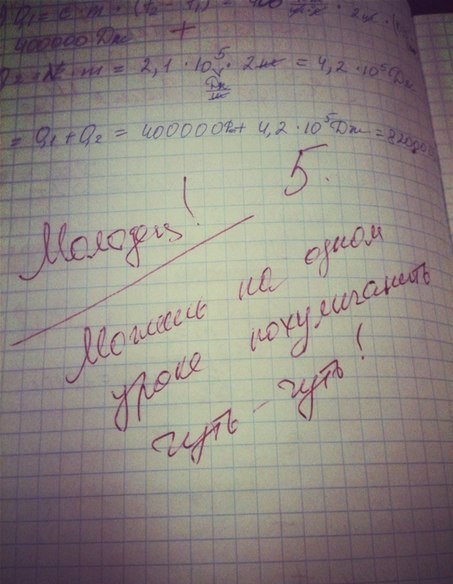 Q₁ = c · m · (t₂ - t₁) = 400 · 2
400000 Дж +
· m = 2,1 · 10⁵ Дж/кг · 2кг = 4,2 · 10⁵ Дж
= Q₁ + Q₂ = 400000 + 4,2 · 10⁵ Дж = 8200
5.
Молодец!
Можешь на одном
уроке похулиганить
чуть-чуть!